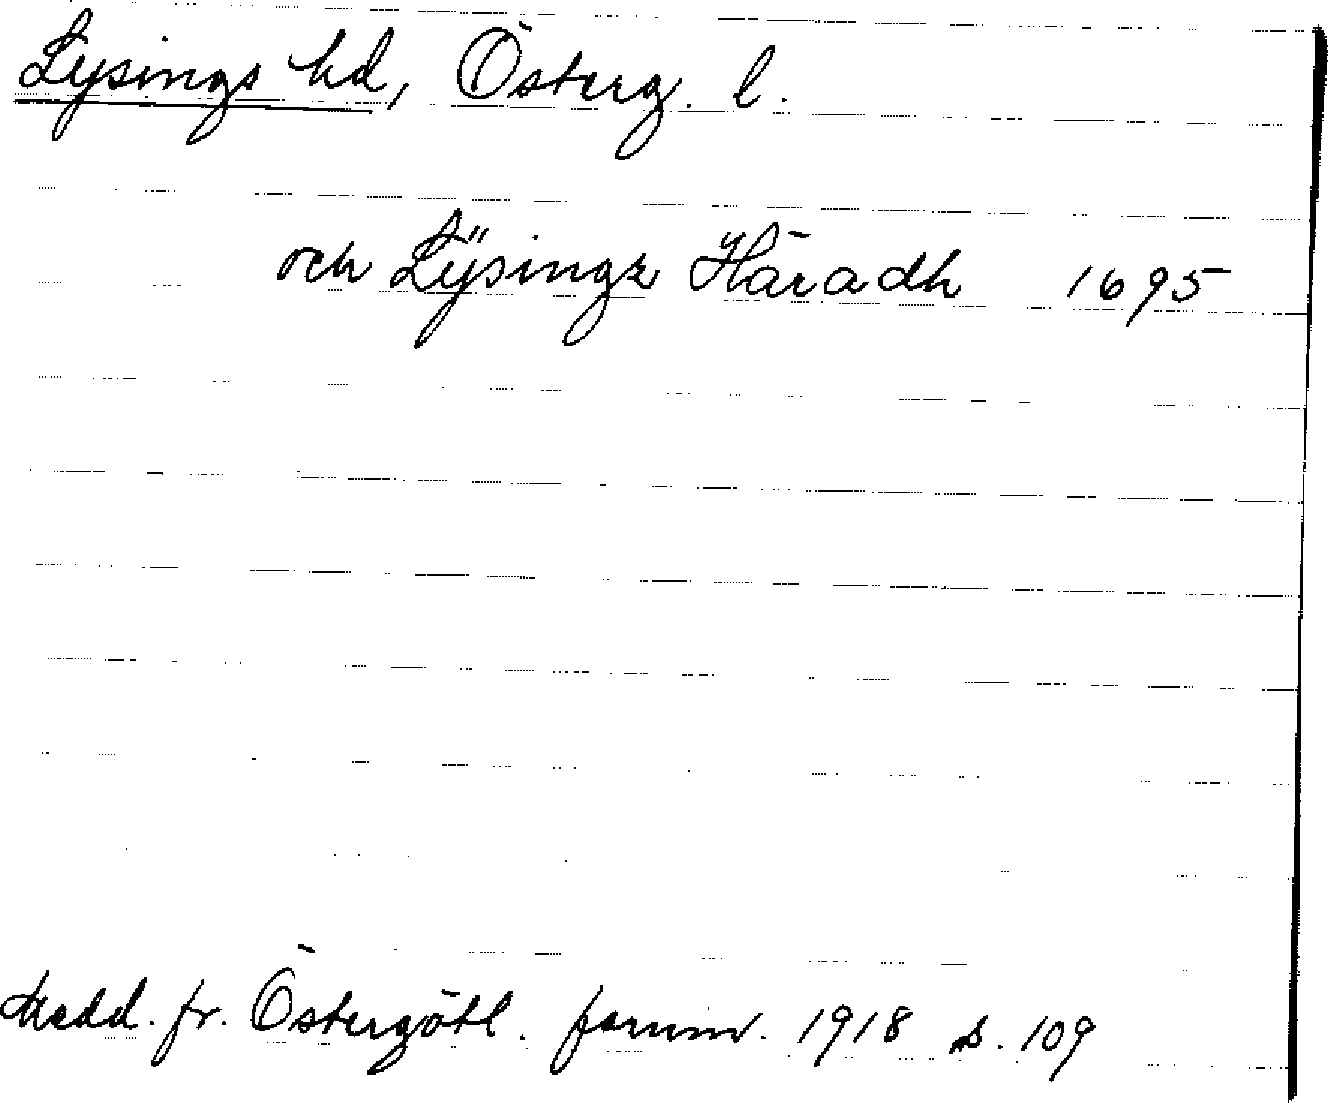 Lysings hd, Österg. l.
och Lÿsingz Häradh 1695
Medd. fr. Östergötl. fornm. 1918 s. 109